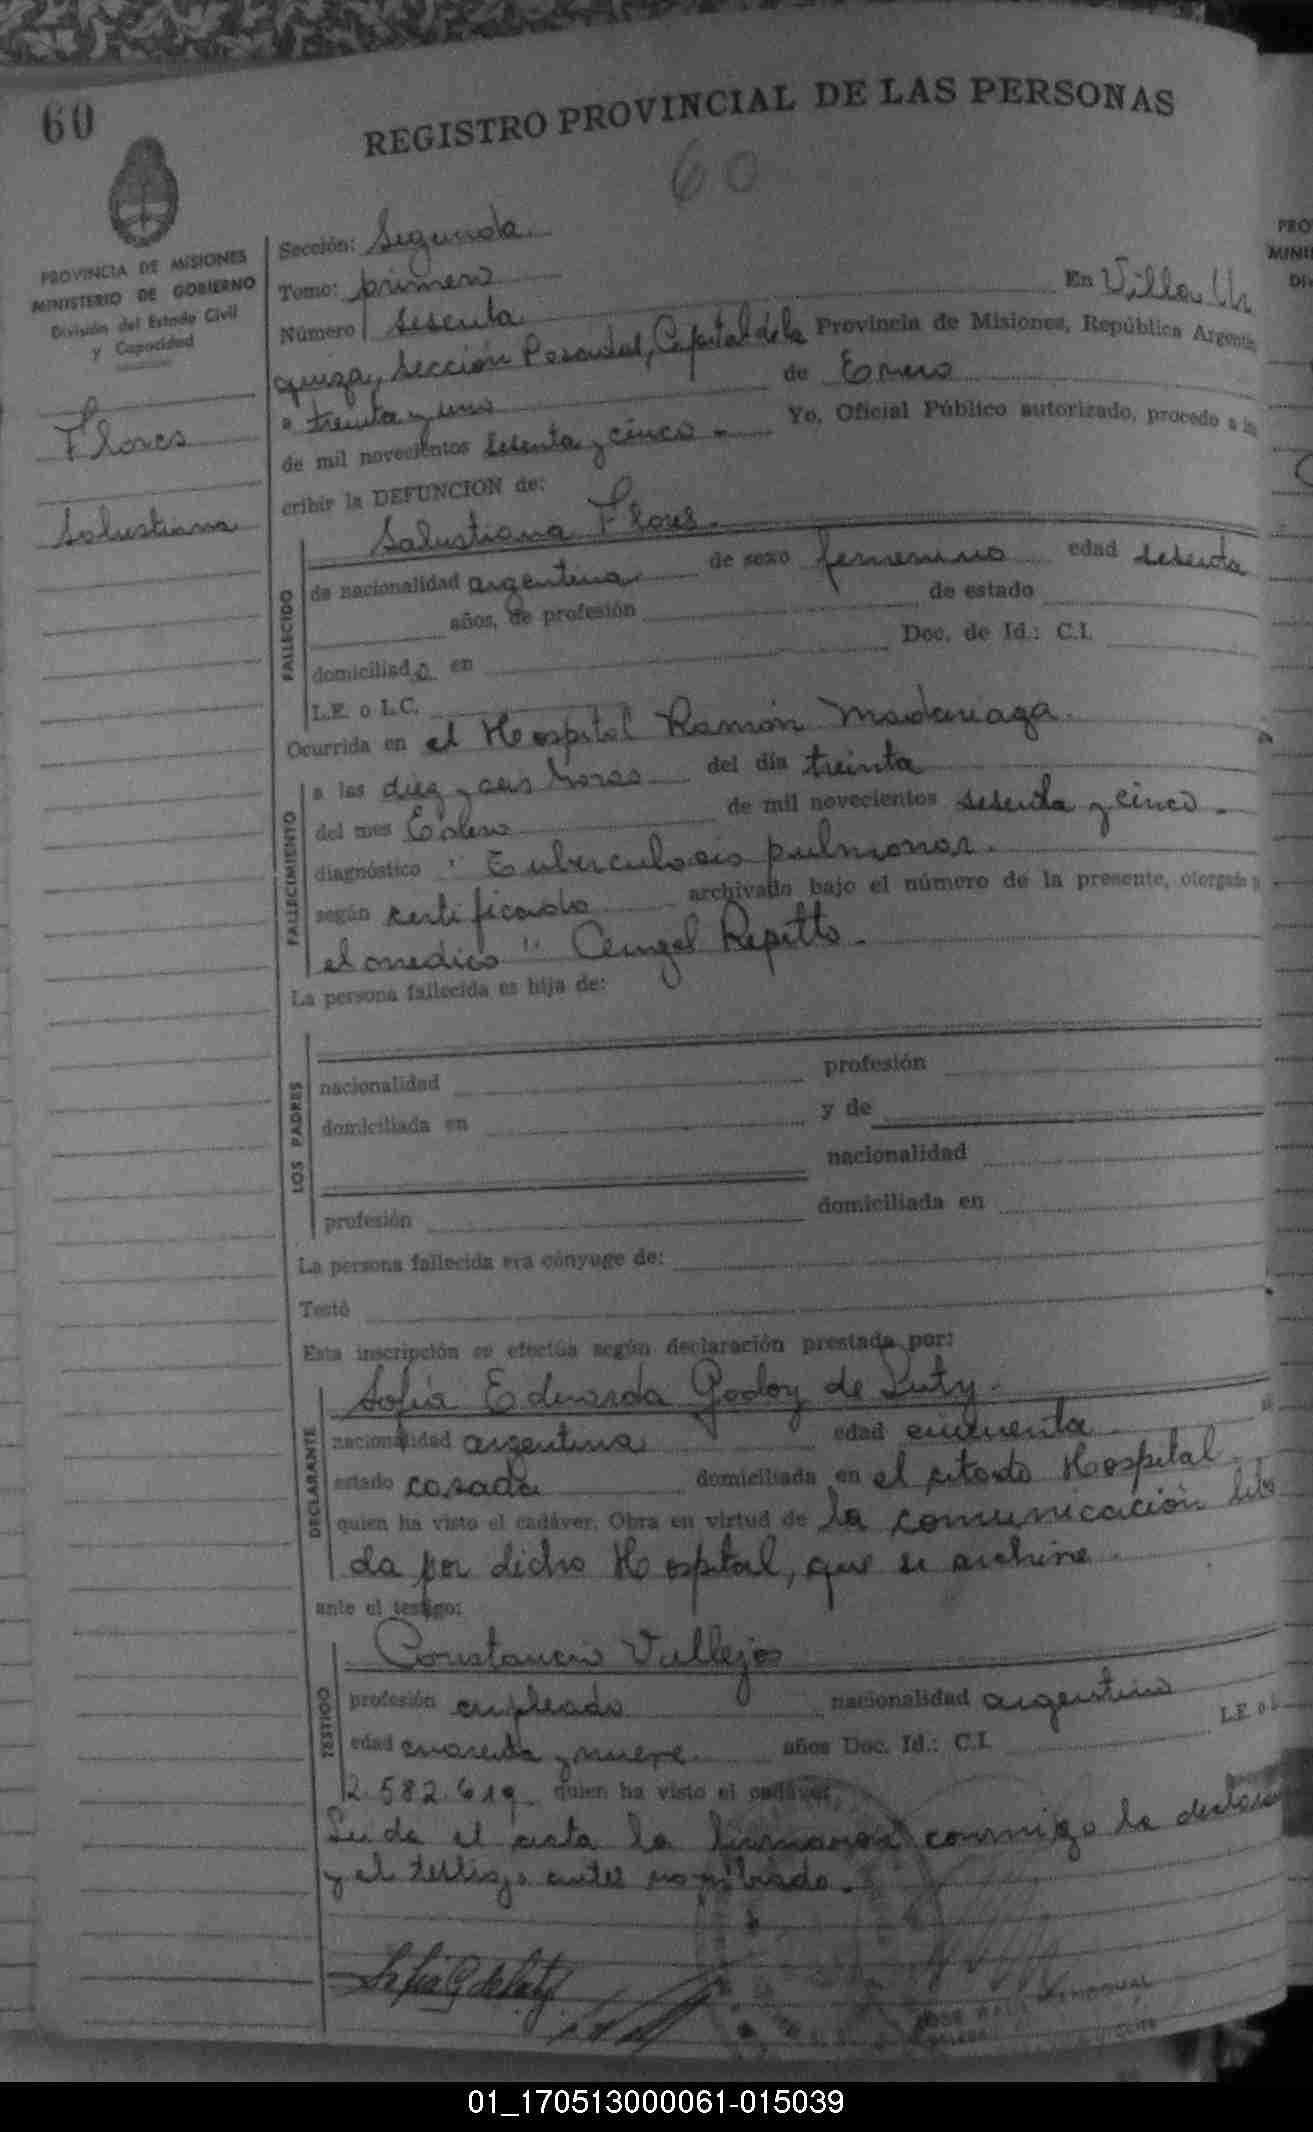 60
REGISTRO PROVINCIAL DE LAS PERSONAS
60
PROVINCIA DE MISIONES
MINISTERIO DE GOBIERNO
División del Estado Civil
y Capacidad
Flores
Salustiana
Sección: Segunda
Tomo: primero
Número sesenta En Villa Ur
quiza, Sección Posadas, Capital de la Provincia de Misiones, República Argentin
a treinta y uno de Enero
de mil novecientos sesenta y cinco Yo, Oficial Público autorizado, procedo a ins
cribir la DEFUNCION de:
Salustiana Flores.
FALLECIDO
de nacionalidad argentina de sexo femenino edad sesenta
años, de profesión de estado
domiciliada en Doc. de Id.: C.I.
L.E. o L.C.
Ocurrida en el Hospital Ramón Madariaga.
FALLECIMIENTO
a las diez y seis horas del día treinta
del mes Enero de mil novecientos sesenta y cinco.
diagnóstico "Tuberculosis pulmonar.
según certificado archivado bajo el número de la presente, otorgado p
el medico " Angel Repetto.
La persona fallecida es hija de:
LOS PADRES
nacionalidad profesión
domiciliada en y de
nacionalidad
profesión domiciliada en
La persona fallecida era cónyuge de:
Testó
Esta inscripción se efectúa según declaración prestada por:
DECLARANTE
Sofía Eduarda Godoy de Luty.
nacionalidad argentina edad cincuenta
estado casada domiciliada en el citado Hospital
quien ha visto el cadáver. Obra en virtud de la comunicación
da por dicho Hospital, que se archiva.
ante el testigo:
TESTIGO
Constancio Vallejos
profesión empleado nacionalidad argentino
edad cuarenta y nueve años Doc. Id.: C.I. L.E. o L
2.582.619 quien ha visto el cadáver.
Leida el acta la firmaron conmigo la declaran
y el testigo antes nombrado.
Sofia G de Luty
01_170513000061-015039